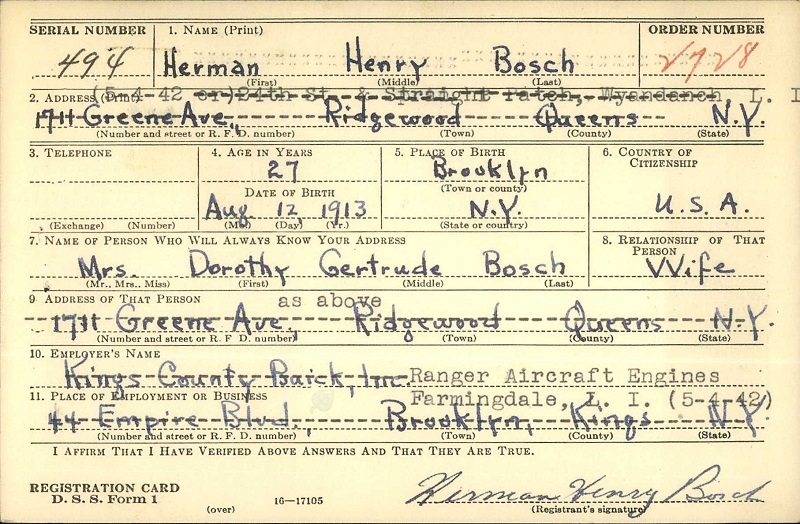 SERIAL NUMBER 1. NAME (Print) ORDER NUMBER
494 Herman Henry Bosch 2728
(First) (Middle) (Last)
(5-4-42 or) 24th St. & Straight Patch, Wyandanch L. I
2. ADDRESS (Print)
1711 Greene Ave., Ridgewood Queens N.Y.
(Number and street or R. F. D. number) (Town) (County) (State)
3. TELEPHONE 4. AGE IN YEARS 5. PLACE OF BIRTH 6. COUNTRY OF CITIZENSHIP
27 Brooklyn
(Town or county)
DATE OF BIRTH
Aug. 12, 1913 N.Y. U.S.A.
(Exchange) (Number) (Mo.) (Day) (Yr.) (State or country)
7. NAME OF PERSON WHO WILL ALWAYS KNOW YOUR ADDRESS 8. RELATIONSHIP OF THAT PERSON
Mrs. Dorothy Gertrude Bosch Wife
(Mr., Mrs., Miss) (First) (Middle) (Last)
9 ADDRESS OF THAT PERSON as above
1711 Greene Ave., Ridgewood Queens N.Y.
(Number and street or R. F. D. number) (Town) (County) (State)
10. EMPLOYER'S NAME
Kings County Baick, Inc. Ranger Aircraft Engines
11. PLACE OF EMPLOYMENT OR BUSINESS Farmingdale, L. I. (5-4-42)
44 Empire Blvd., Brooklyn, Kings N.Y.
(Number and street or R. F. D. number) (Town) (County) (State)
I AFFIRM THAT I HAVE VERIFIED ABOVE ANSWERS AND THAT THEY ARE TRUE.
REGISTRATION CARD
D. S. S. Form 1 (over) 16—17105 Herman Henry Bosch
(Registrant's signature)